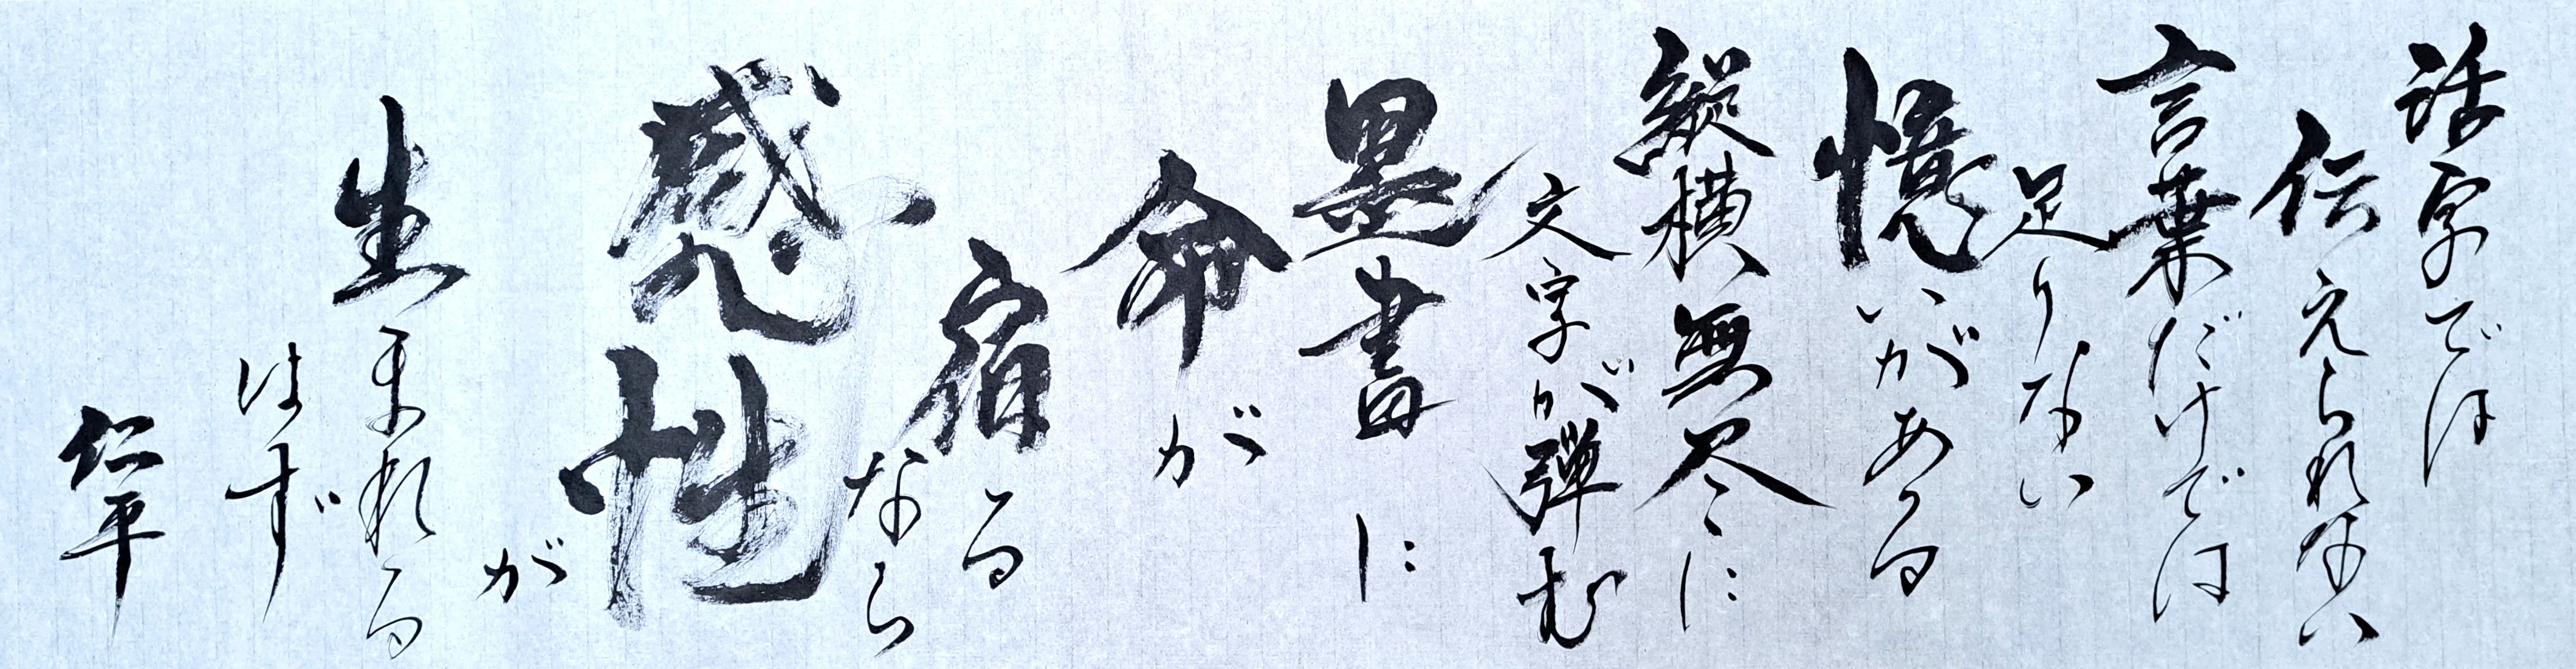 活字では
伝えられない
言葉だけでは
足りない
憶いがある
縦横無尽に
文字が弾む
墨書に
命が
宿る
なら
感性
が
生まれる
はず
仁平